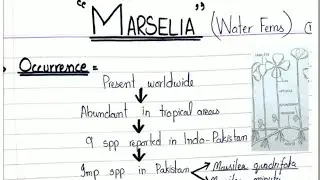 "MARSELIA" (Water Ferns)
Occurrence =
Present worldwide
Abundant in tropical areas
9 spp reported in Indo-Pakistan
Imp spp in Pakistan Marsilea quadrifola